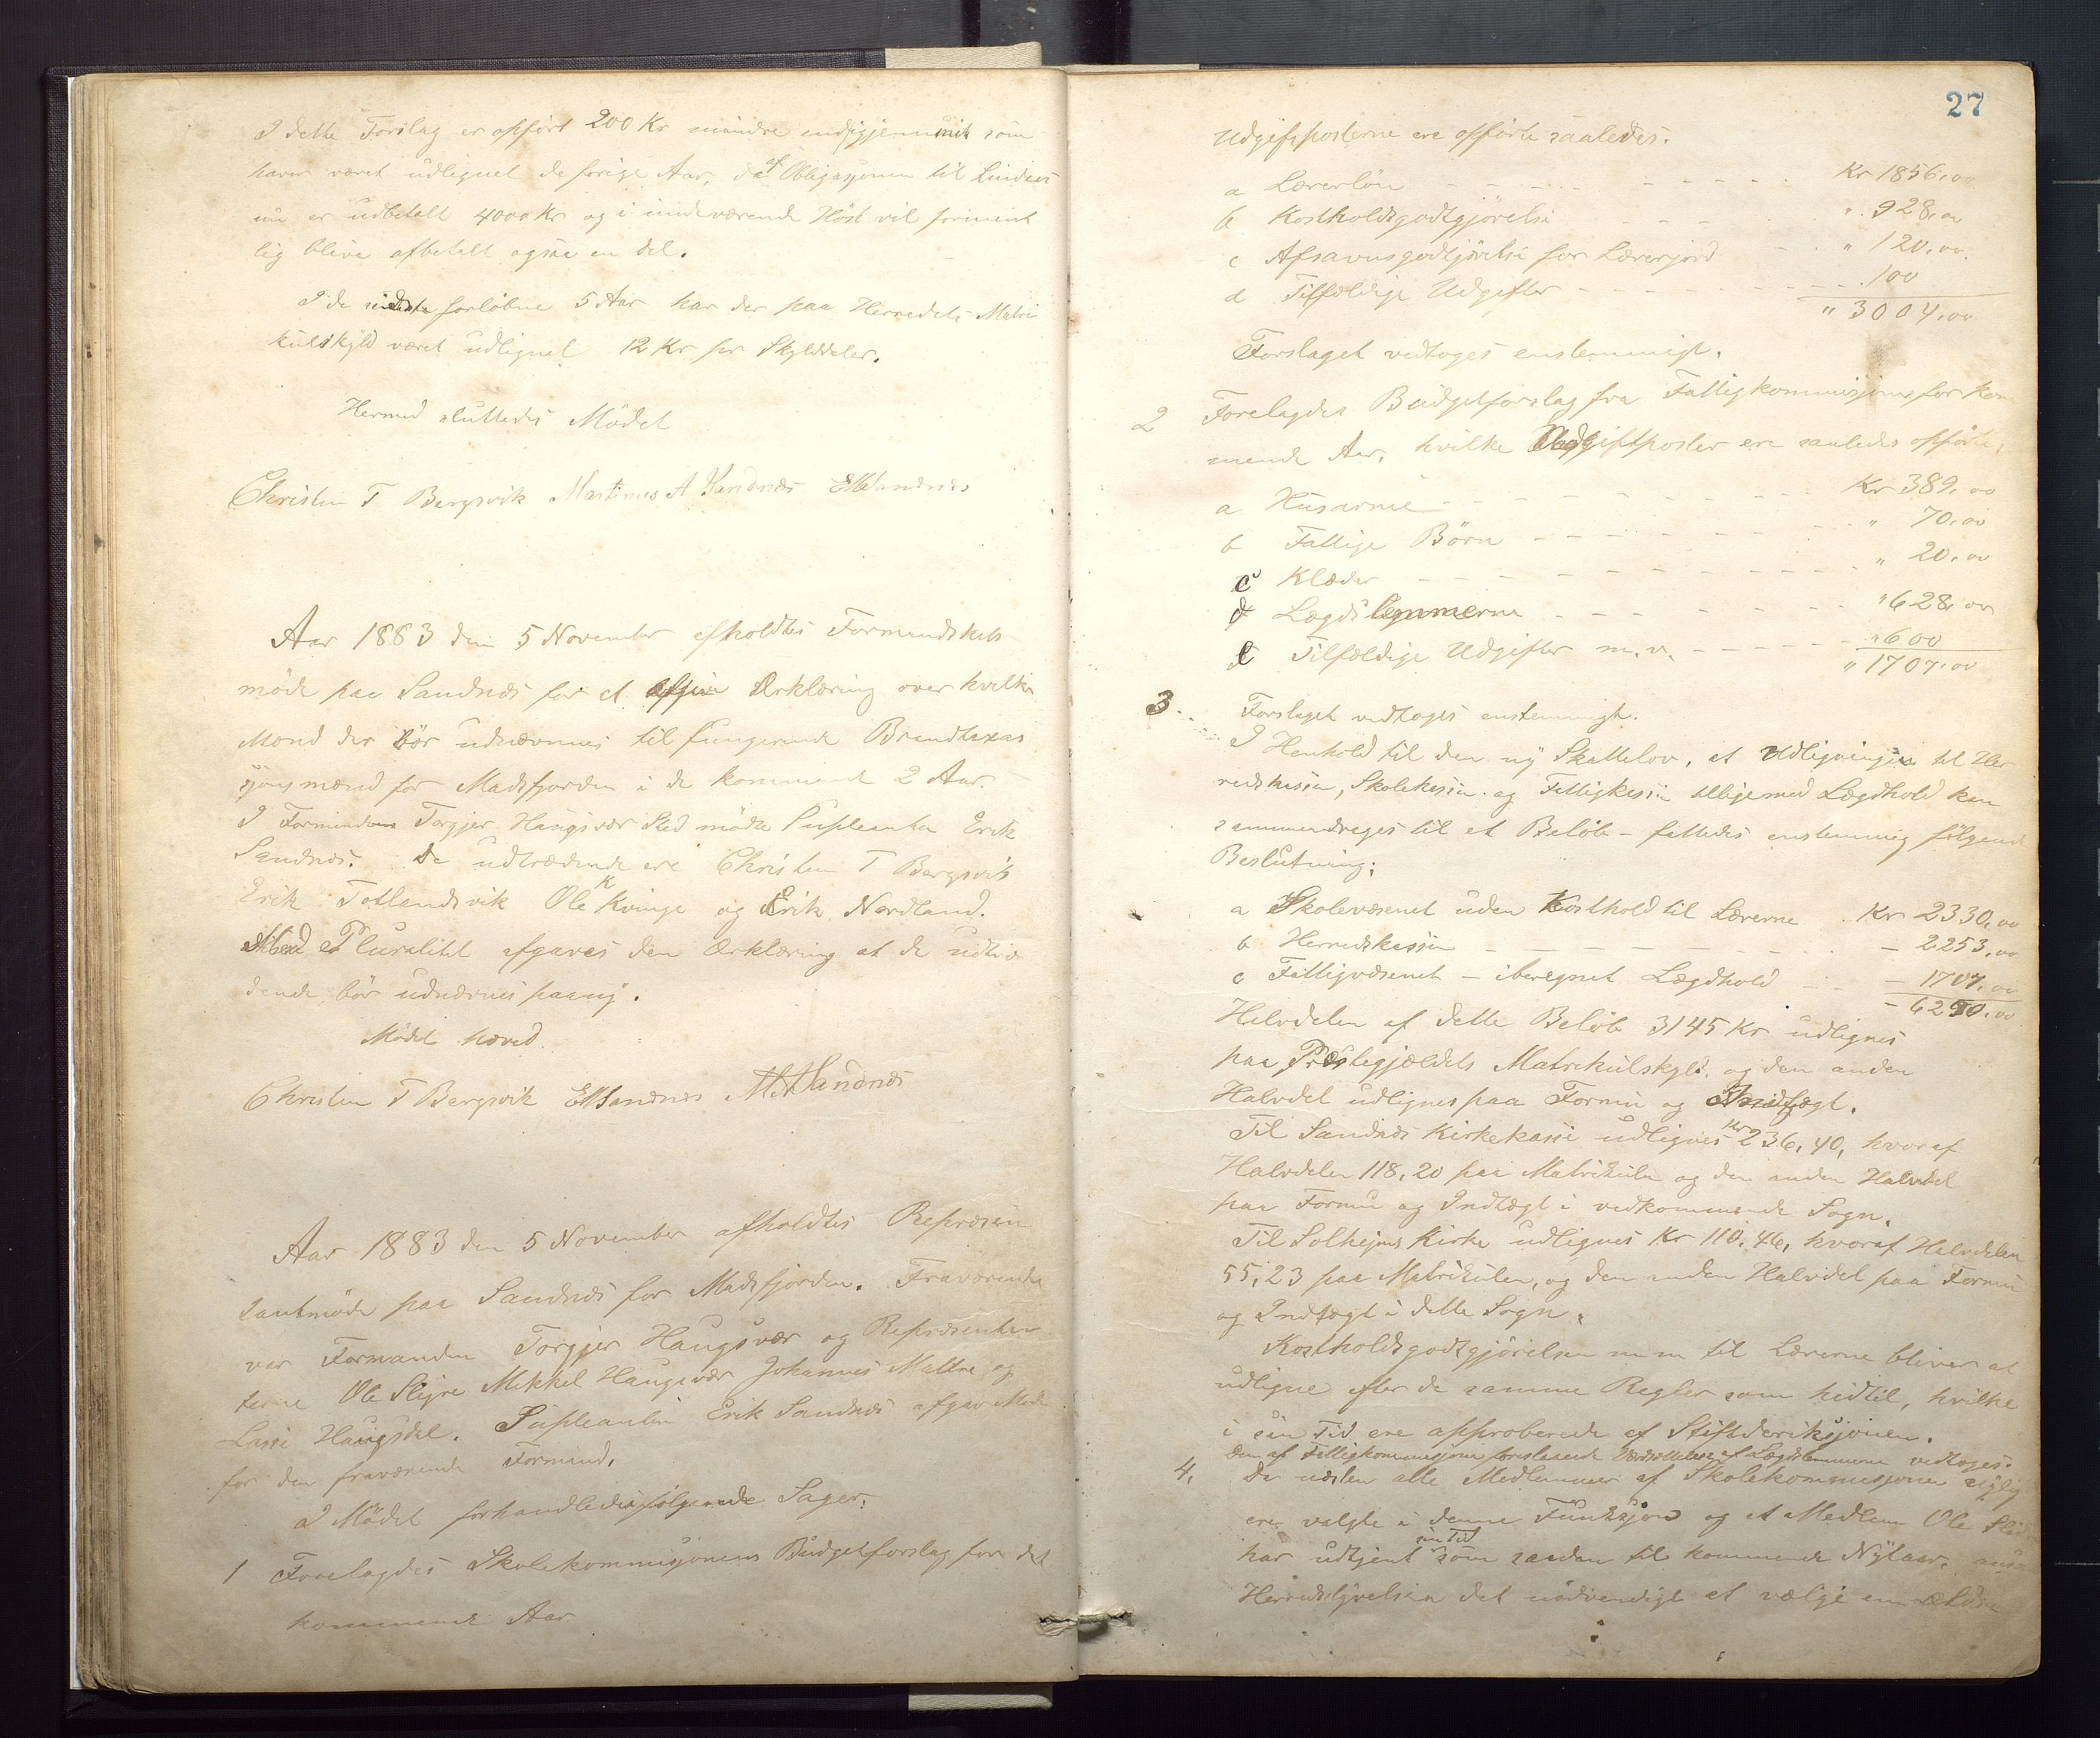 I dette Forslag er opført 200 Kr mindre end som
haver været udlignet de forige Aar, da af Obligasjonen til Lindaas
nu er udbetalt 4000 Kr og i indeværende Høst vil forment
lig blive afbetalt også en del.
I de sidste forløbne 5 Aar har der paa Herredets Matri
kulskyld været udlignet 12 Kr per Skylddaler.
Hermed sluttedes Mødet
Christen T Bergsvik Martinus A Sandnæs E M Sandnæs
Aar 1883 den 5 November afholdtes Formandskabs
møde paa Sandnæs for at afgive Erklæring over hvilke
Mænd der bør udnævnes til fungerende Brandtaxas
sjonsmænd for Masfjorden i de kommende 2 Aar.
I Formanden Torgjer Haugsvær Sted mødte Supleanten Erik
Sandnæs. De udtrædende ere Christen T Bergsvik
Erik Totlandsvik Ole K Kvinge og Erik Nordland.
Med Pluralitet afgaves den Erklæring at de udtræ
dende bør udnævnes paany.
Mødet hævet
Christen T Bergsvik E M Sandnæs M A Sandnæs
Aar 1883 den 5 November afholdtes Repræsen
tantmøde paa Sandnæs for Masfjorden. Fraværende
var Formanden Torgjer Haugsvær og Repræsentan
terne Ole Sleire Mikkel Haugsvær Johannes Mattre og
Lasse Haugsdal. Supleanten Erik Sandnæs afgav Møde
for den fraværende Formand.
I Mødet forhandledes følgende Sager.
1 Forelagdes Skolekommisjonens Budgetforslag for det
kommende Aar
27
Udgiftsposterne ere opførte saaledes.
a Lærerløn Kr 1856,00
b Kostholdsgodtgjørelse " 928,00
c Afsavnsgodtjørelse for Lærerjord " 120,00
d Tilfældige Udgifter 100
" 3004,00
Forslaget vedtoges enstemmigt.
2 Forelagdes Budgetforslag fra Fattigkommisjonen for kom
mende Aar, hvilke Udgiftposter ere saaledes opførte,
a Husarme Kr 389,00
b Fattige Børn " 70,00
c Klæder " 20,00
d Lægdslemmerne " 628,00
e Tilfældige Udgifter m.v. " 600
" 1707,00
Forslaget vedtoges enstemmigt.
3. I Henhold til den ny Skattelov, at Udligningen til Her
redskassen, Skolekassen og Fattigkassen tilligemed Lægdhold kan
sammendrages til et Beløb – fattedes enstemmig følgende
Beslutning:
a Skolevæsenet uden Kosthold til Lærerne Kr 2330,00
b Herredskassen – 2253,00
c Fattigvæsenet – iberegnet Lægdhold – 1707,00
– 6290,00
Halvdelen af dette Beløb 3145 Kr udlignes
paa Præstegjældets Matrikulskyld og den anden
Halvdel udlignes paa Formue og Indtægt.
Til Sandnæs Kirkekasse udlignes Kr 236,40, hvoraf
Halvdelen 118,20 paa Matrikulen og den anden Halvdel
paa Formue og Indtægt i vedkommende Sogn.
Til Solheims Kirke udlignes Kr 110,46, hvoraf Halvdelen
55,23 paa Matrikulen, og den anden Halvdel paa Formue
og Indtægt i dette Sogn.
Kostholdsgodtgjørelsen m m til Lærerne bliver at
udligne efter de samme Regler som hidtil, hvilke
i sin Tid ere approberede af Stiftsdireksjonen.
Den af Fattigkommisjonen foreslaaede Værdsættelse af Lægdslemmerne vedtoges.
4. Da næsten alle Medlemmer af Skolekommisjonen
ere valgte i denne Funksjon og at Medlem Ole
har udtjent sin Tid som saadan til kommende Nytaar,
Herredstyrelsen det nødvendigt at vælge